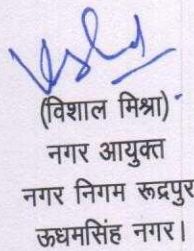 (विशाल मिश्रा)
नगर आयुक्त
नगर निगम रूद्रपुर
ऊधमसिंह नगर।